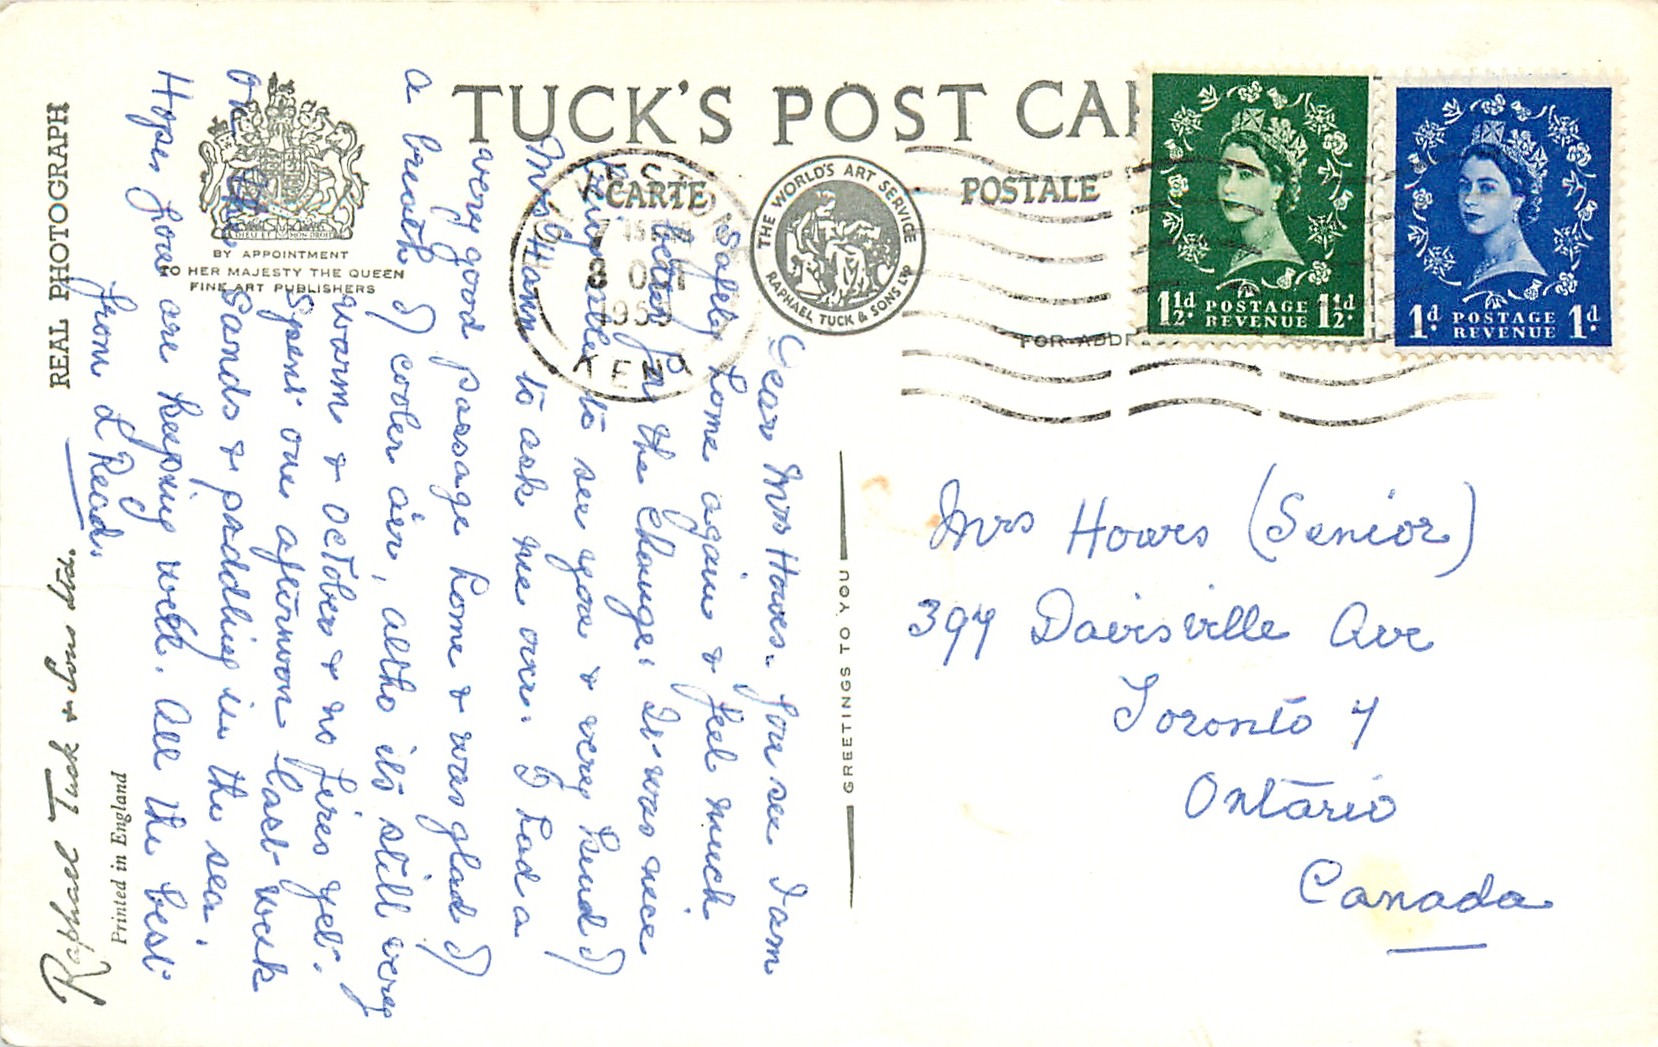 TUCK'S POST CAR
CARTE POSTALE
THE WORLD'S ART SERVICE
RAPHAEL TUCK & SONS LTD
FOR ADDRE
BY APPOINTMENT
TO HER MAJESTY THE QUEEN
FINE ART PUBLISHERS
REAL PHOTOGRAPH
Raphael Tuck & Sons Ltd.
Printed in England
GREETINGS TO YOU
1½d POSTAGE REVENUE 1½d
1d POSTAGE REVENUE 1d
8 OCT
195
KENT
Dear Mrs Howes. You see I am
safely home again & feel much
better for the change. It was nice
being able to see you & very kind of
Mrs Hann to ask me over. I had a
very good passage home & was glad of
a breath of cooler air, altho its still very
warm & October & no fires yet.
Spent one afternoon last week
on the sands & paddling in the sea.
Hopes you are keeping well. All the best
from L Read.
Mrs Howes (Senior)
394 Davisville Ave
Toronto 7
Ontario
Canada